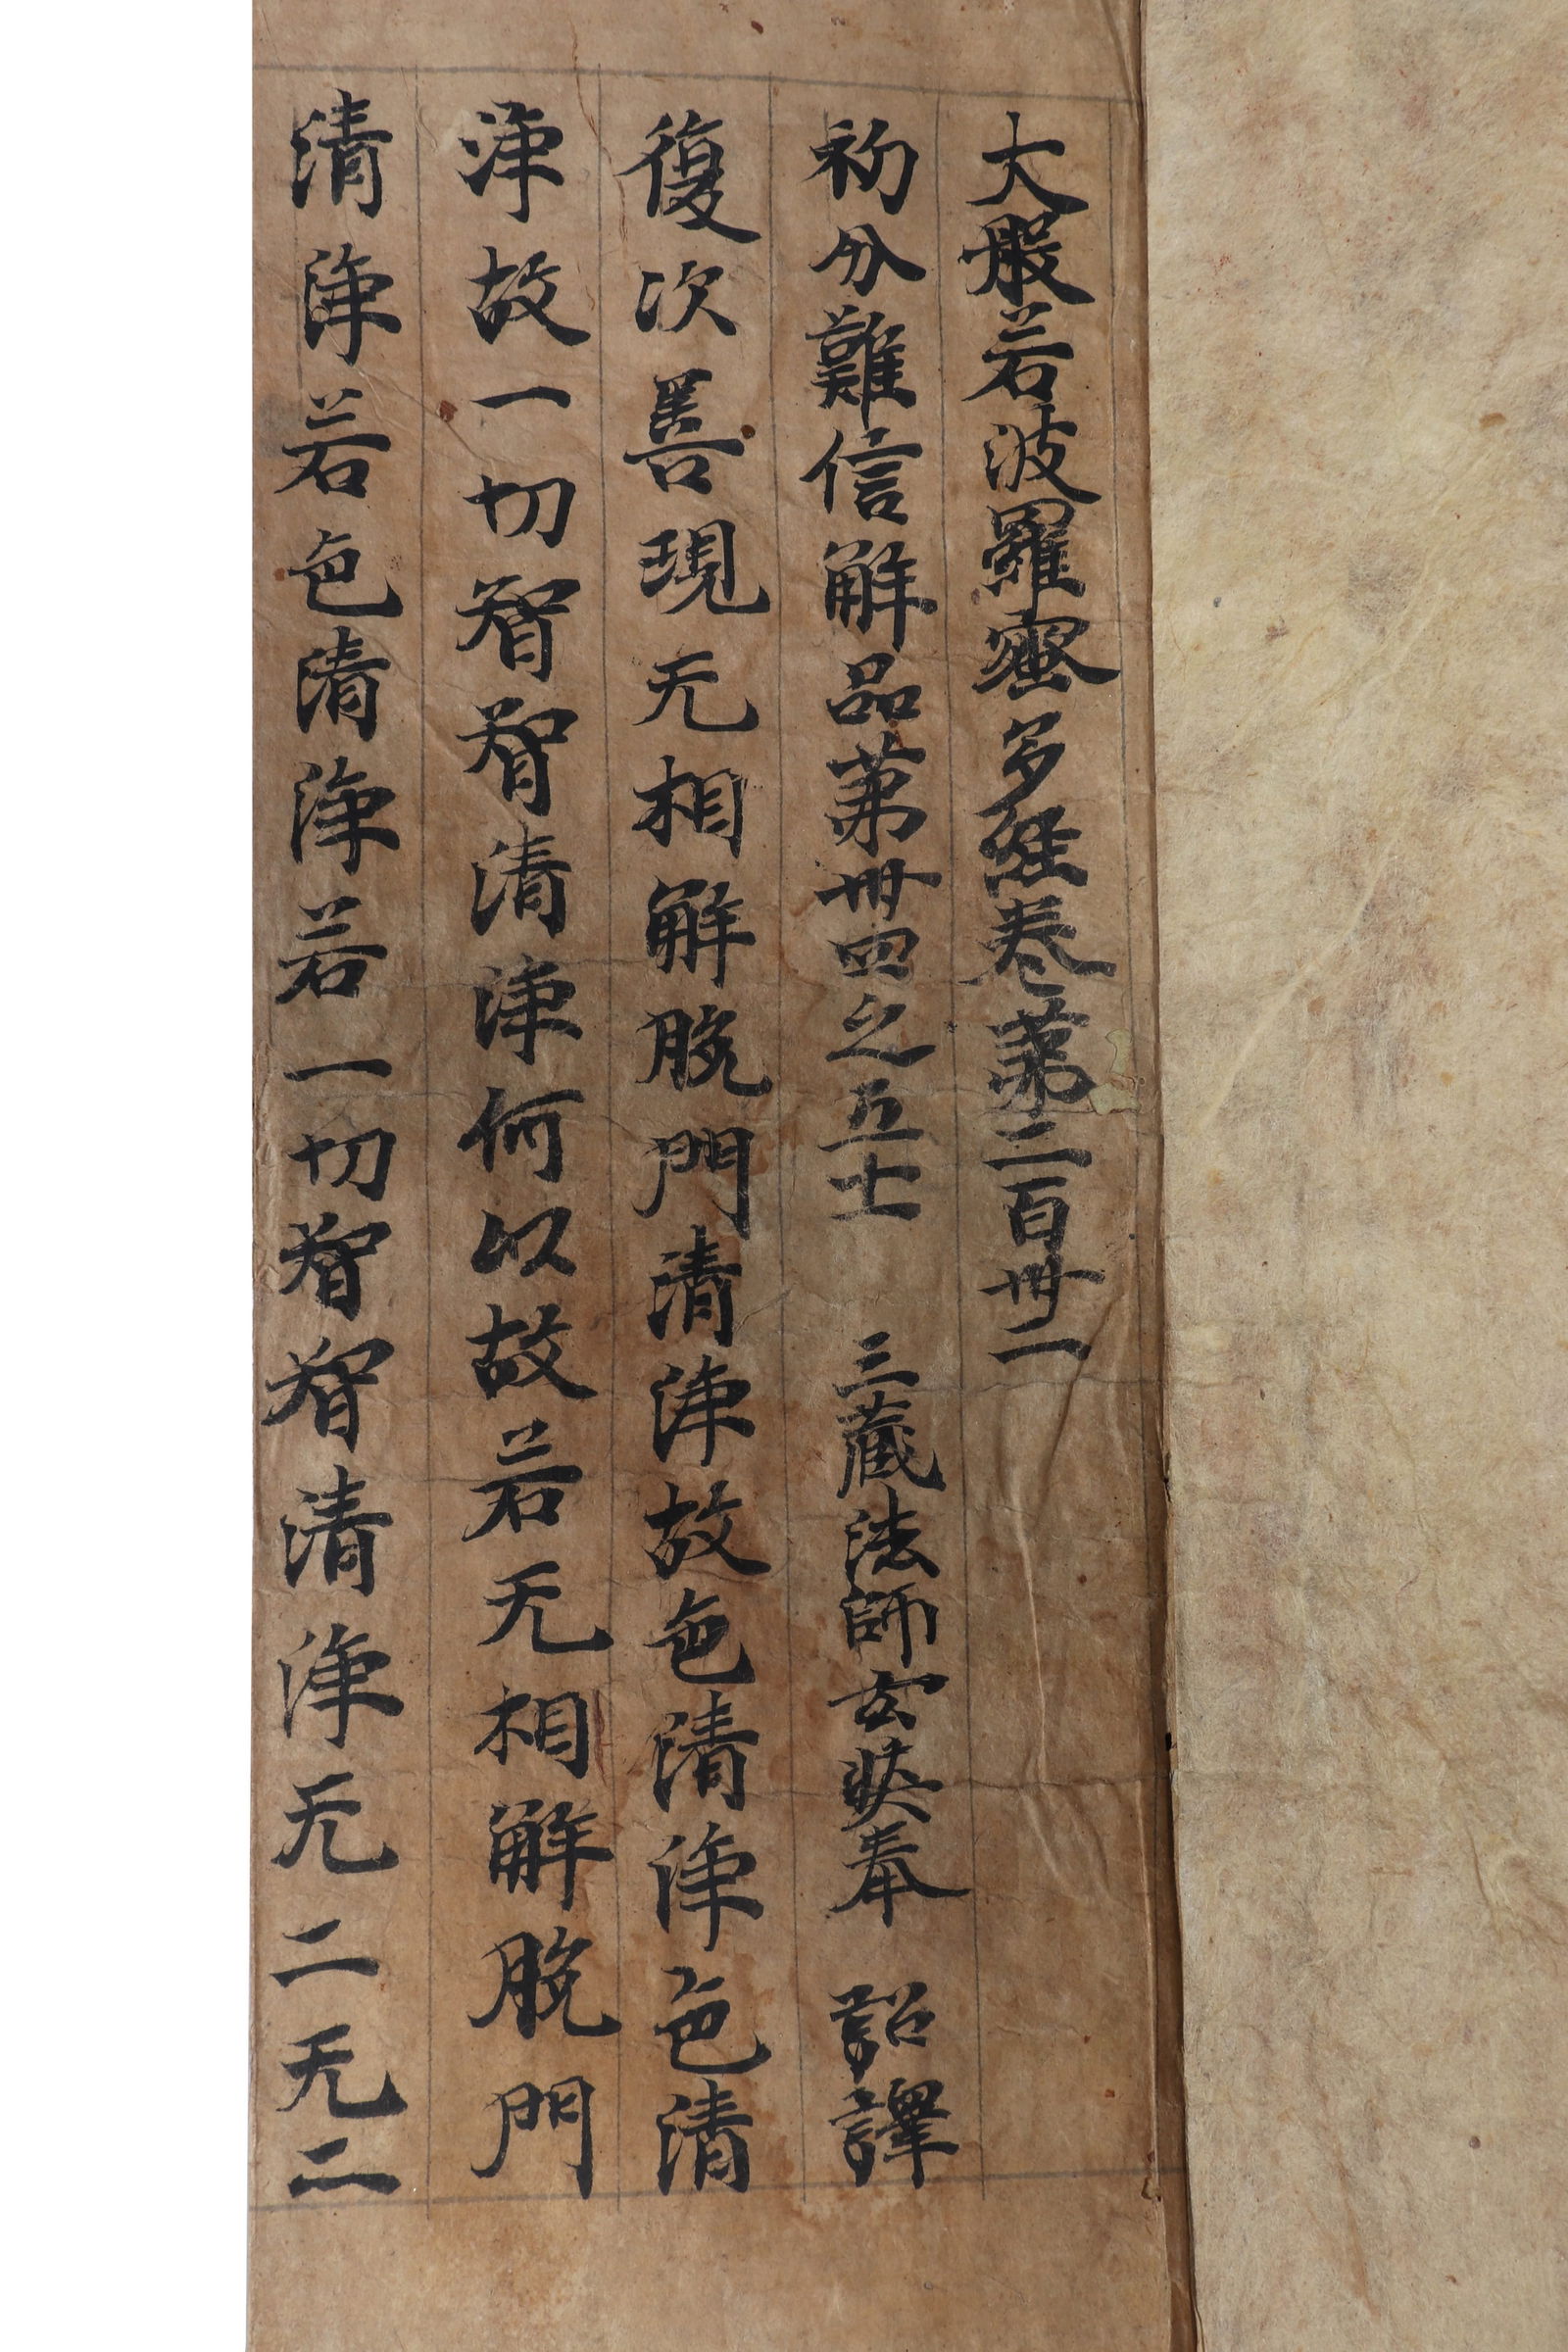 大般若波羅蜜多經卷第二百卌二
初分難信解品第卅四之五十一 三藏法師玄奘奉 詔譯
復次善現无相解脫門清淨故色清淨色清
淨故一切智智清淨何以故若无相解脫門
清淨若色清淨若一切智智清淨无二无二